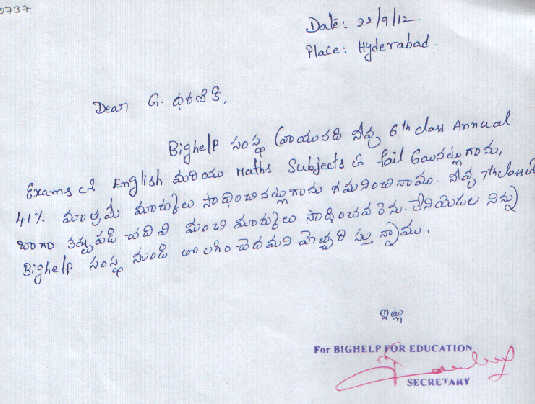 0737
Date: 22/9/12
Place: Hyderabad.
Dear G. ధరణికి,
Bighelp సంస్థ ద్వారా చదివే నీవు 6th class Annual
Exams లో English మరియు Maths Subjects లో fail అయినట్లుగాను,
41% మాత్రమే మార్కులు సాధించినట్లుగాను గమనించినాము. నీవు 7th class లో
బాగా కష్టపడి చదివి మంచి మార్కులు సాధించవలెను. లేనియెడల నిన్ను
Bighelp సంస్థ నుండి తొలగించెదమని హెచ్చరిస్తున్నాము.
ఇట్లు
For BIGHELP FOR EDUCATION
SECRETARY